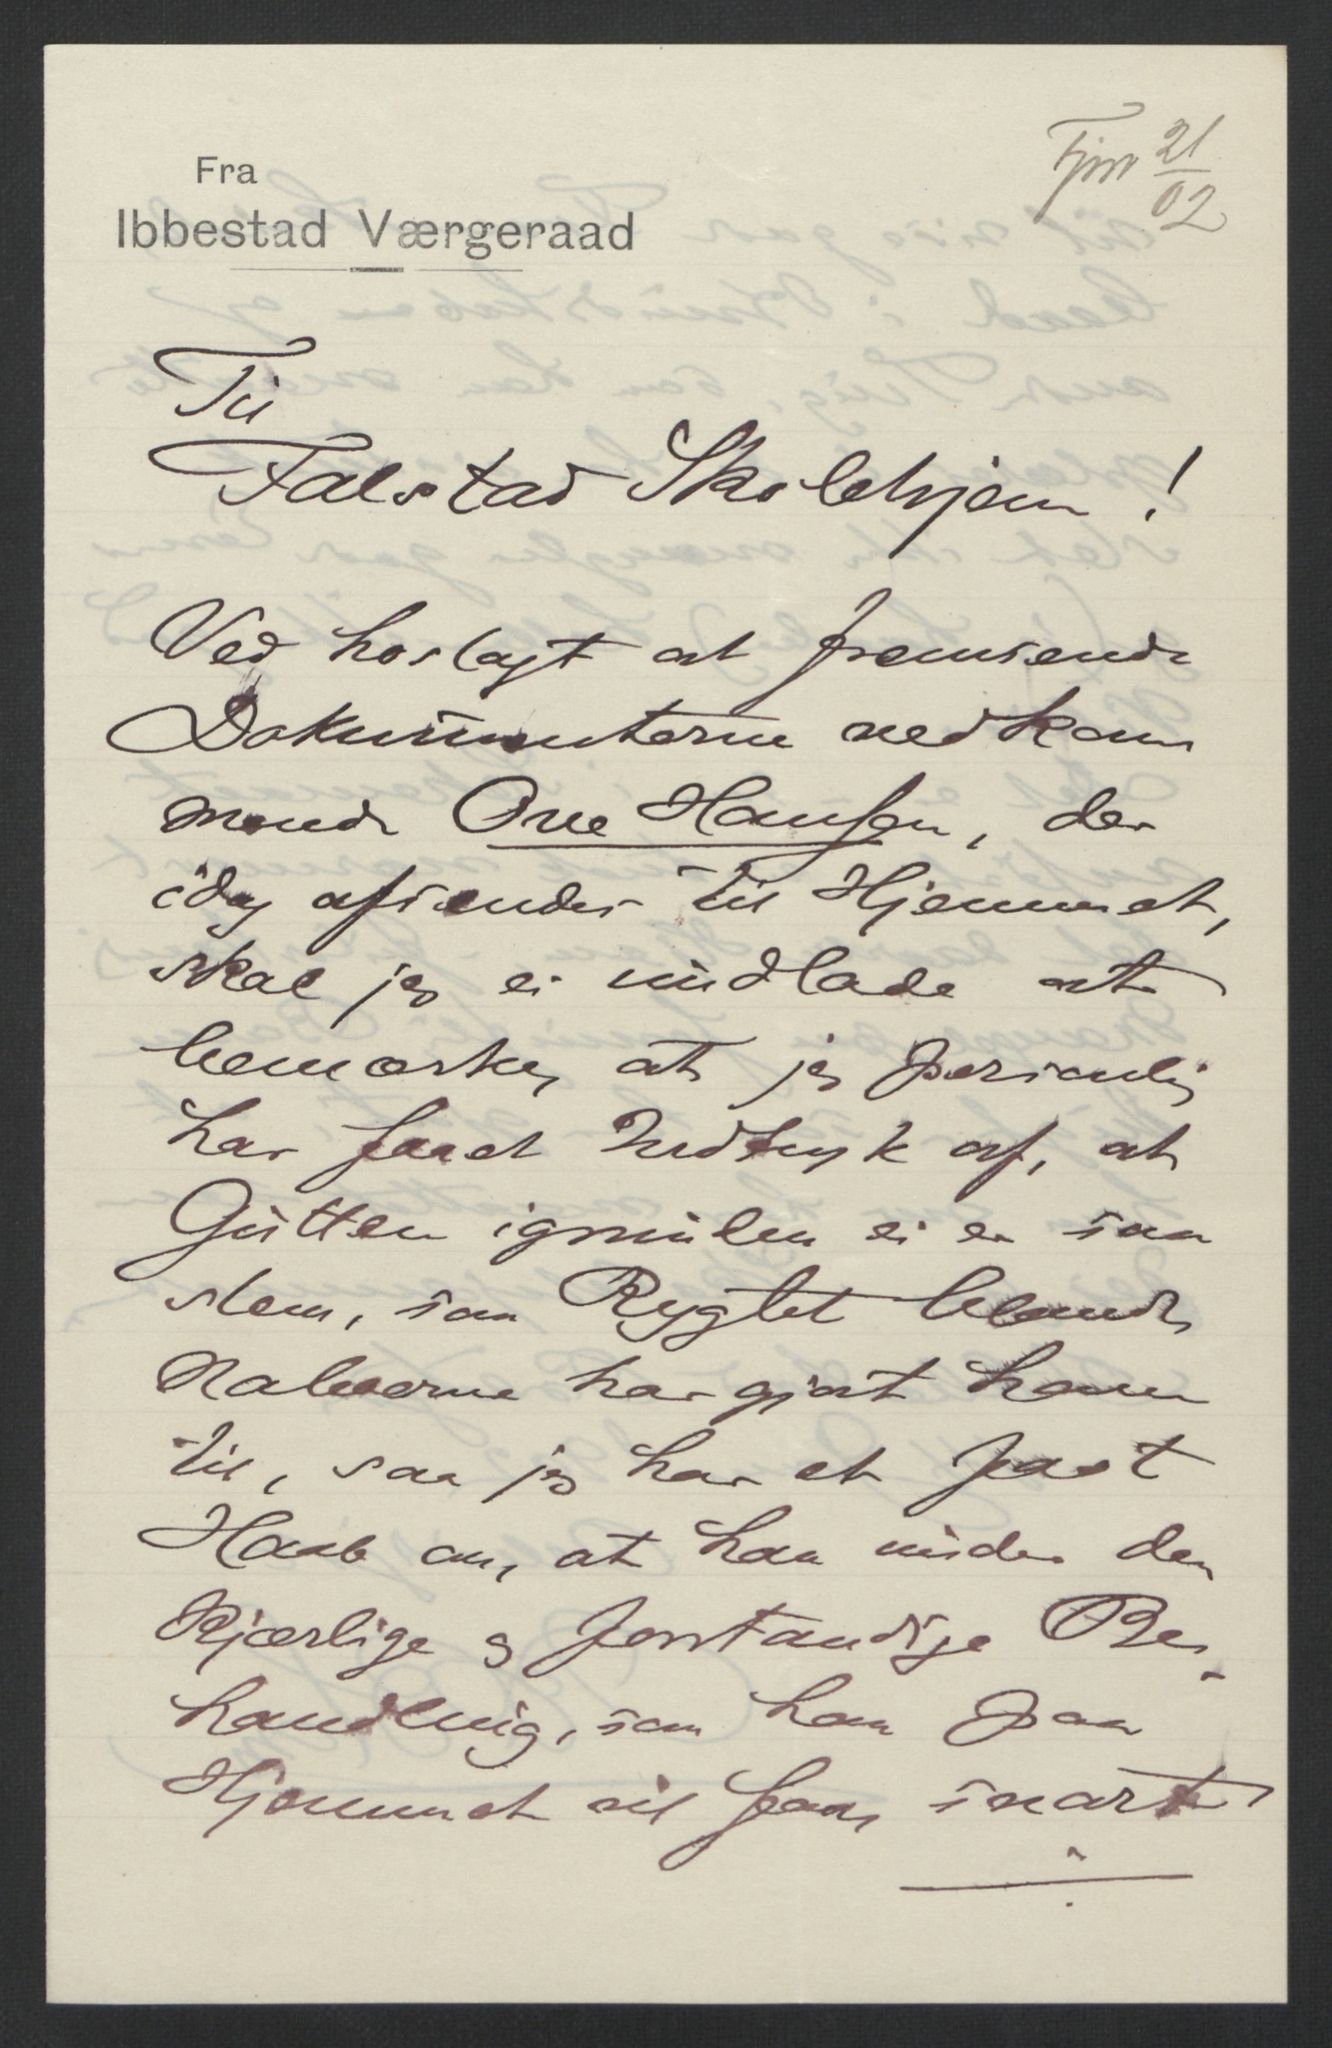 Fra
Ibbestad Værgeraad
Tjm 21/02
Til
Falstad Skolehjem!
Ved hoslagt at fremsende
Dokumenterne vedkom
mende Ove Hansen, der
idag afsendes til Hjemmet,
skal jeg ei undlade at
bemærke, at jeg personlig
har faaet Indtryk af, at
Gutten igrunden ei er saa
slem, som Rygtet blandt
Naboerne har gjort ham
til, saa jeg har et fast
Haab om, at han under den
kjærlige og forstandige Be-
handling, som han paa
Hjemmet vil faa, snart